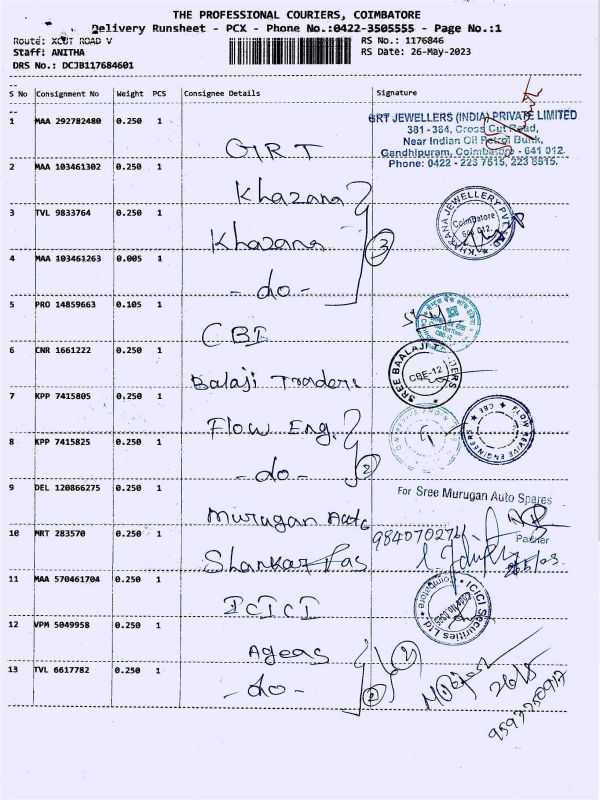 THE PROFESSIONAL COURIERS, COIMBATORE
Delivery Runsheet - PCX - Phone No.:0422-3505555 - Page No.:1
Route: XCUT ROAD V RS No.: 1176846
Staff: ANITHA RS Date: 26-May-2023
DRS No.: DCJB117684601
S No Consignment No Weight PCS Consignee Details Signature
1 MAA 292782480 0.250 1 GRT
GRT JEWELLERS (INDIA) PRIVATE LIMITED
381 - 384, Cross Cut Road,
Near Indian Oil Petrol Bunk,
Gandhipuram, Coimbatore - 641 012.
Phone: 0422 - 223 7515, 223 6515.
2 MAA 103461302 0.250 1 Khazana
3 TVL 9833764 0.250 1 Khazana 3
KHAZANA JEWELLERY PVT. LTD.
Coimbatore
641 012.
4 MAA 103461263 0.005 1 - do -
5 PRO 14859663 0.105 1 CBI
6 CNR 1661222 0.250 1 Balaji Traders
SREE BAALAJI TRADERS
CBE-12
7 KPP 7415805 0.250 1 Flow Eng.
FLOW REVIVE ENGINEERS CBE
8 KPP 7415825 0.250 1 - do - 2
9 DEL 120866275 0.250 1 Murugan Auto
For Sree Murugan Auto Spares
Partner
10 MRT 283570 0.250 1 Shankar Das
11 MAA 570461704 0.250 1 ICICI
ICICI Securities Ltd
Coimbatore
12 VPM 5049958 0.250 1 Ageas
13 TVL 6617782 0.250 1 - do - 2 2
26/5